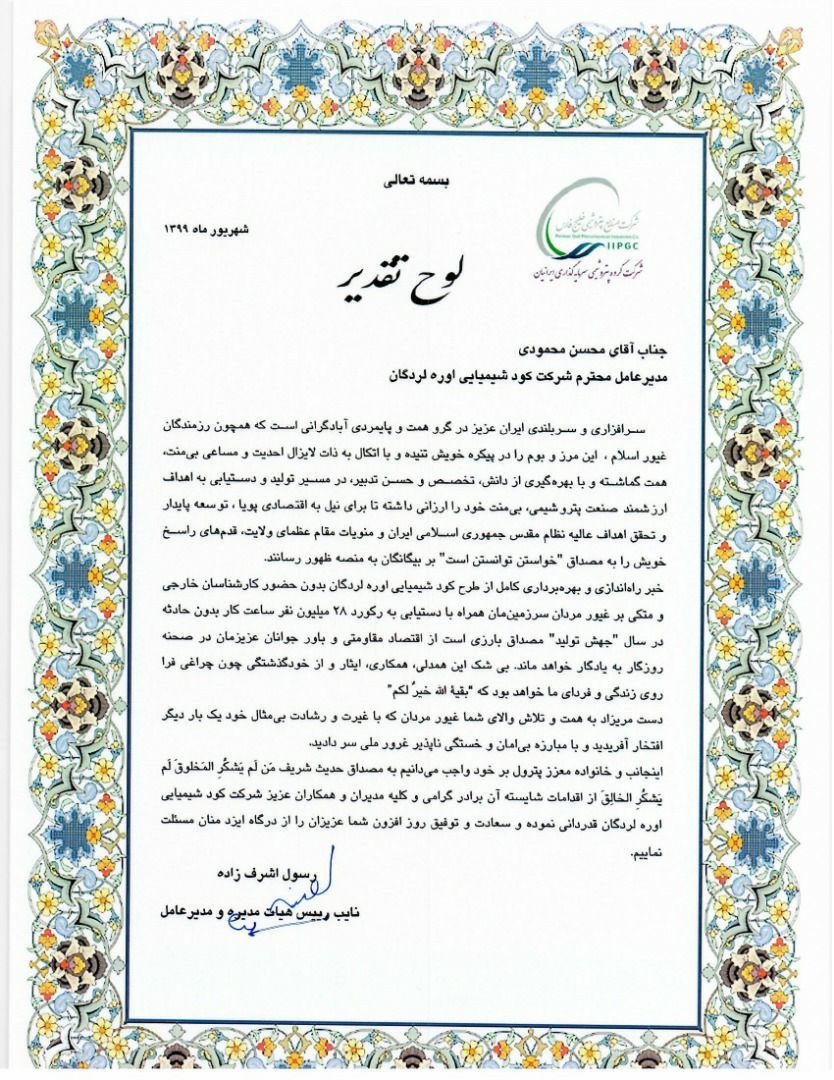 بسمه تعالی
شرکت صنایع پتروشیمی خلیج فارس
Persian Gulf Petrochemical Industries Co.
IIPGC
شرکت گروه پتروشیمی سرمایه گذاری ایرانیان
شهریور ماه ۱۳۹۹
لوح تقدیر
جناب آقای محسن محمودی
مدیرعامل محترم شرکت کود شیمیایی اوره لردگان
سرافرازی و سربلندی ایران عزیز در گرو همت و پایمردی آبادگرانی است که همچون رزمندگان
غیور اسلام ، این مرز و بوم را در پیکره خویش تنیده و با اتکال به ذات لایزال احدیت و مساعی بی‌منت،
همت گماشته و با بهره‌گیری از دانش، تخصص و حسن تدبیر، در مسیر تولید و دستیابی به اهداف
ارزشمند صنعت پتروشیمی، بی‌منت خود را ارزانی داشته تا برای نیل به اقتصادی پویا ، توسعه پایدار
و تحقق اهداف عالیه نظام مقدس جمهوری اسلامی ایران و منویات مقام عظمای ولایت، قدم‌های راسخ
خویش را به مصداق "خواستن توانستن است" بر بیگانگان به منصه ظهور رسانند.
خبر راه‌اندازی و بهره‌برداری کامل از طرح کود شیمیایی اوره لردگان بدون حضور کارشناسان خارجی
و متکی بر غیور مردان سرزمین‌مان همراه با دستیابی به رکورد ۲۸ میلیون نفر ساعت کار بدون حادثه
در سال "جهش تولید" مصداق بارزی است از اقتصاد مقاومتی و باور جوانان عزیزمان در صحنه
روزگار به یادگار خواهد ماند. بی شک این همدلی، همکاری، ایثار و از خودگذشتگی چون چراغی فرا
روی زندگی و فردای ما خواهد بود که "بقیة الله خیرٌ لکم"
دست مریزاد به همت و تلاش والای شما غیور مردان که با غیرت و رشادت بی‌مثال خود یک بار دیگر
افتخار آفریدید و با مبارزه بی‌امان و خستگی ناپذیر غرور ملی سر دادید.
اینجانب و خانواده معزز پترول بر خود واجب می‌دانیم به مصداق حدیث شریف مَن لَم یَشکُرِ المَخلوقَ لَم
یَشکُرِ الخالِقَ از اقدامات شایسته آن برادر گرامی و کلیه مدیران و همکاران عزیز شرکت کود شیمیایی
اوره لردگان قدردانی نموده و سعادت و توفیق روز افزون شما عزیزان را از درگاه ایزد منان مسئلت
نماییم.
رسول اشرف زاده
نایب رییس هیات مدیره و مدیرعامل